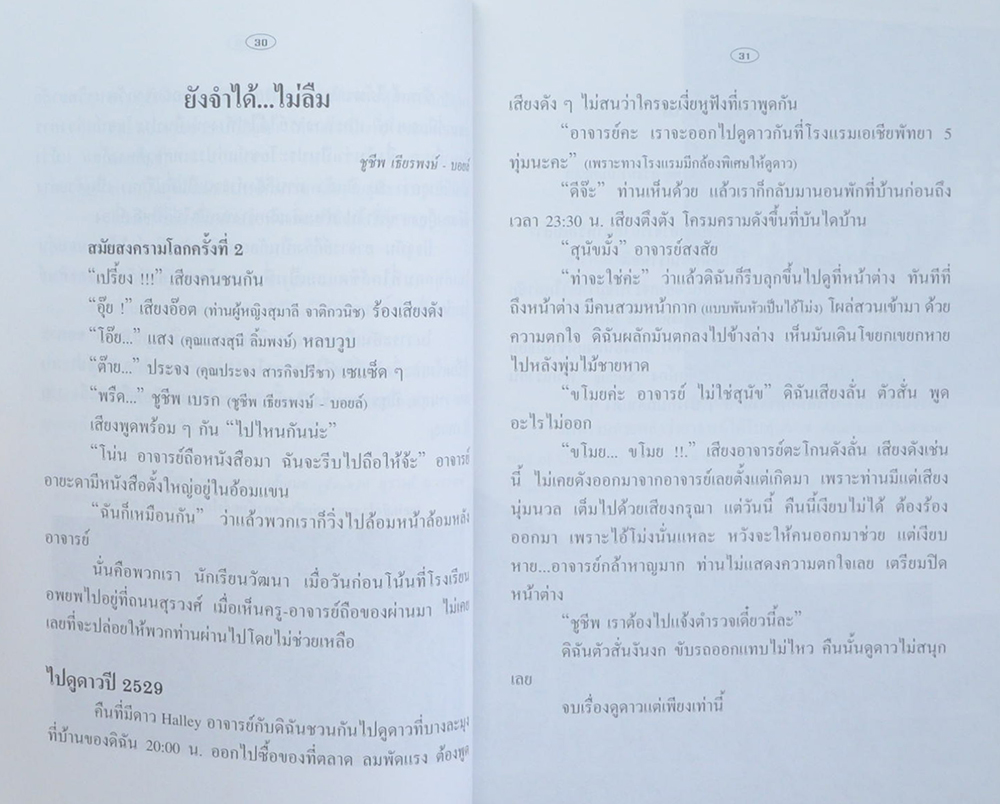 30
ยังจำได้...ไม่ลืม
ชูชีพ เธียรพงษ์ - บอยล์
สมัยสงครามโลกครั้งที่ 2
“เปรี้ยง !!!” เสียงคนชนกัน
“อุ๊ย !” เสียงอ๊อด (ท่านผู้หญิงสุมาลี จาติกวนิช) ร้องเสียงดัง
“โอ๊ย...” แสง (คุณแสงสุนี ลิ้มพงษ์) หลบวูบ
“ต๊าย...” ประจง (คุณประจง สารกิจปรีชา) เซแซ็ด ๆ
“พรืด...” ชูชีพ เบรก (ชูชีพ เธียรพงษ์ - บอยล์)
เสียงพูดพร้อม ๆ กัน “ไปไหนกันน่ะ”
“โน่น อาจารย์ถือหนังสือมา ฉันจะรีบไปถือให้จ้ะ” อาจารย์
อายะดามีหนังสือตั้งใหญ่อยู่ในอ้อมแขน
“ฉันก็เหมือนกัน” ว่าแล้วพวกเราก็วิ่งไปล้อมหน้าล้อมหลัง
อาจารย์
นั่นคือพวกเรา นักเรียนวัฒนา เมื่อวันก่อนโน้นที่โรงเรียน
อพยพไปอยู่ที่ถนนสุรวงศ์ เมื่อเห็นครู-อาจารย์ถือของผ่านมา ไม่เคย
เลยที่จะปล่อยให้พวกท่านผ่านไปโดยไม่ช่วยเหลือ
ไปดูดาวปี 2529
คืนที่มีดาว Halley อาจารย์กับดิฉันชวนกันไปดูดาวที่บางละมุง
ที่บ้านของดิฉัน 20:00 น. ออกไปซื้อของที่ตลาด ลมพัดแรง ต้องพูด
31
เสียงดัง ๆ ไม่สนว่าใครจะเงี่ยหูฟังที่เราพูดกัน
“อาจารย์คะ เราจะออกไปดูดาวกันที่โรงแรมเอเชียพัทยา 5
ทุ่มนะคะ” (เพราะทางโรงแรมมีกล้องพิเศษให้ดูดาว)
“ดีจ๊ะ” ท่านเห็นด้วย แล้วเราก็กลับมานอนพักที่บ้านก่อนถึง
เวลา 23:30 น. เสียงตึงตัง โครมครามดังขึ้นที่บันไดบ้าน
“สุนัขมั้ง” อาจารย์สงสัย
“ท่าจะใช่ค่ะ” ว่าแล้วดิฉันก็รีบลุกขึ้นไปดูที่หน้าต่าง ทันทีที่
ถึงหน้าต่าง มีคนสวมหน้ากาก (แบบพันหัวเป็นไอ้โม่ง) โผล่สวนเข้ามา ด้วย
ความตกใจ ดิฉันผลักมันตกลงไปข้างล่าง เห็นมันเดินโขยกเขยกหาย
ไปหลังพุ่มไม้ชายหาด
“ขโมยค่ะ อาจารย์ ไม่ใช่สุนัข” ดิฉันเสียงลั่น ตัวสั่น พูด
อะไรไม่ออก
“ขโมย... ขโมย !!.” เสียงอาจารย์ตะโกนดังลั่น เสียงดังเช่น
นี้ ไม่เคยดังออกมาจากอาจารย์เลยตั้งแต่เกิดมา เพราะท่านมีแต่เสียง
นุ่มนวล เต็มไปด้วยเสียงกรุณา แต่วันนี้ คืนนี้เงียบไม่ได้ ต้องร้อง
ออกมา เพราะไอ้โม่งนั่นแหละ หวังจะให้คนออกมาช่วย แต่เงียบ
หาย...อาจารย์กล้าหาญมาก ท่านไม่แสดงความตกใจเลย เตรียมปิด
หน้าต่าง
“ชูชีพ เราต้องไปแจ้งตำรวจเดี๋ยวนี้ละ”
ดิฉันตัวสั่นงันงก ขับรถออกแทบไม่ไหว คืนนั้นดูดาวไม่สนุก
เลย
จบเรื่องดูดาวแต่เพียงเท่านี้